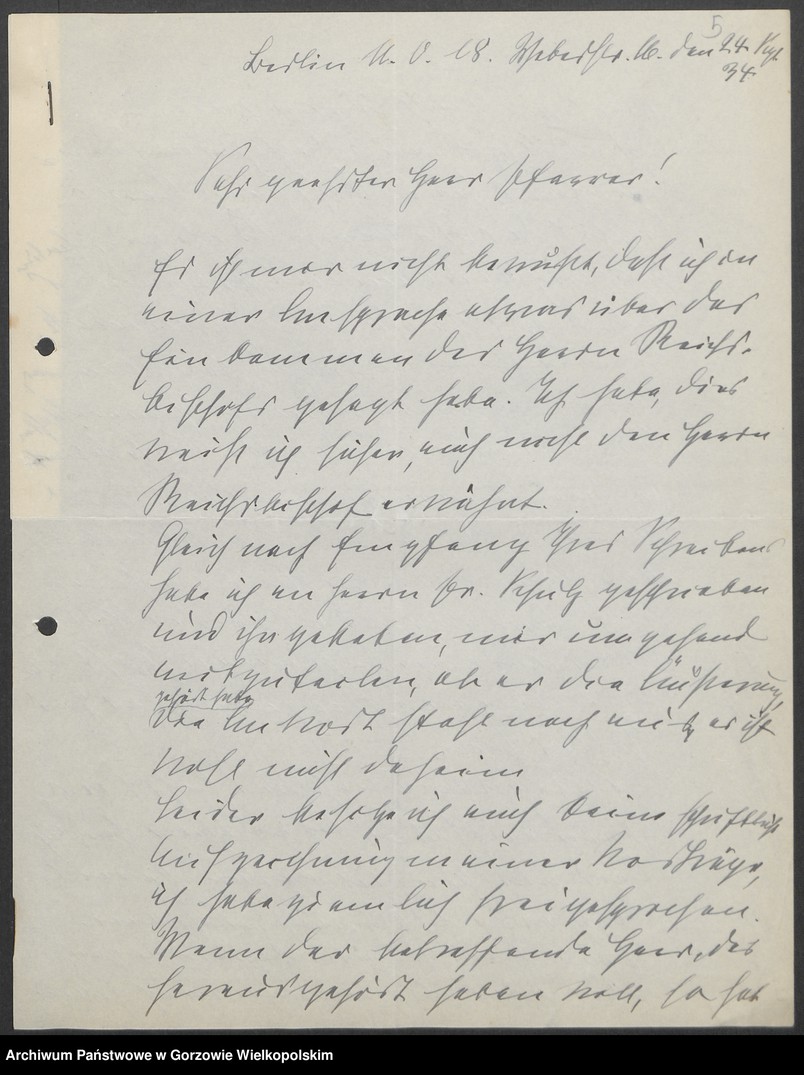 5
Berlin N. O. 18. Weberstr. 16. den 24. Sept.
34
Sehr geehrter Herr Pfarrer!
Es ist mir nicht bewußt, daß ich in
einer Ansprache etwas über das
Einkommen des Herrn Reichs-
bischofs gesagt habe. Ich habe, dies
weiß ich sicher, auch nicht den Herrn
Reichsbischof erwähnt.
Gleich nach Empfang Ihres Schreibens
habe ich an Herrn Dr. Schulz geschrieben
und ihn gebeten, mir umgehend
mitzuteilen, ob er die Äußerung,
gehört habe
Die Antwort steht noch aus, er ist
wohl nicht daheim
Leider besitze ich auch keine schriftliche
Aufzeichnung meiner Vorträge,
ich habe ziemlich frei gesprochen.
Wenn der betreffende Herr, das
herausgehört haben will, so hat
Archiwum Państwowe w Gorzowie Wielkopolskim